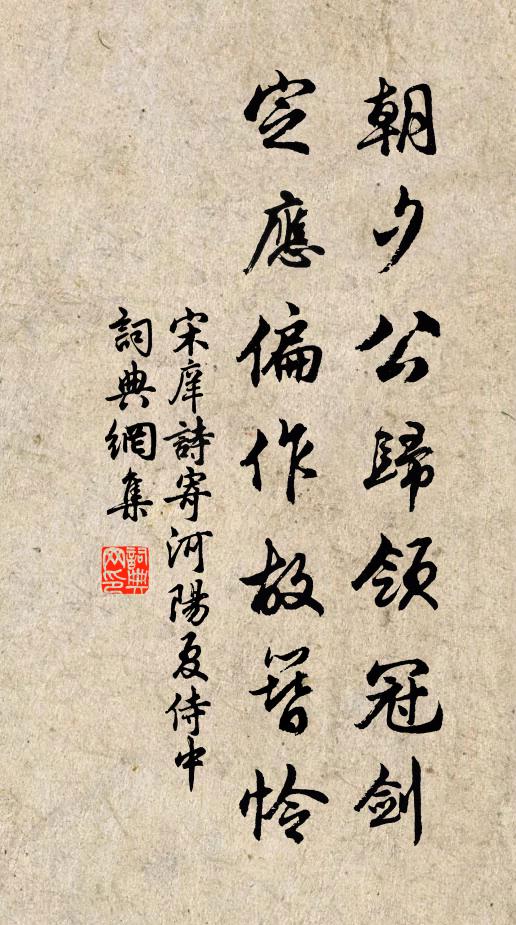 朝夕公歸領冠劍
定應偏作故簪憐
宋庠詩寄河陽夏侍中
詞典網集
詞典網印